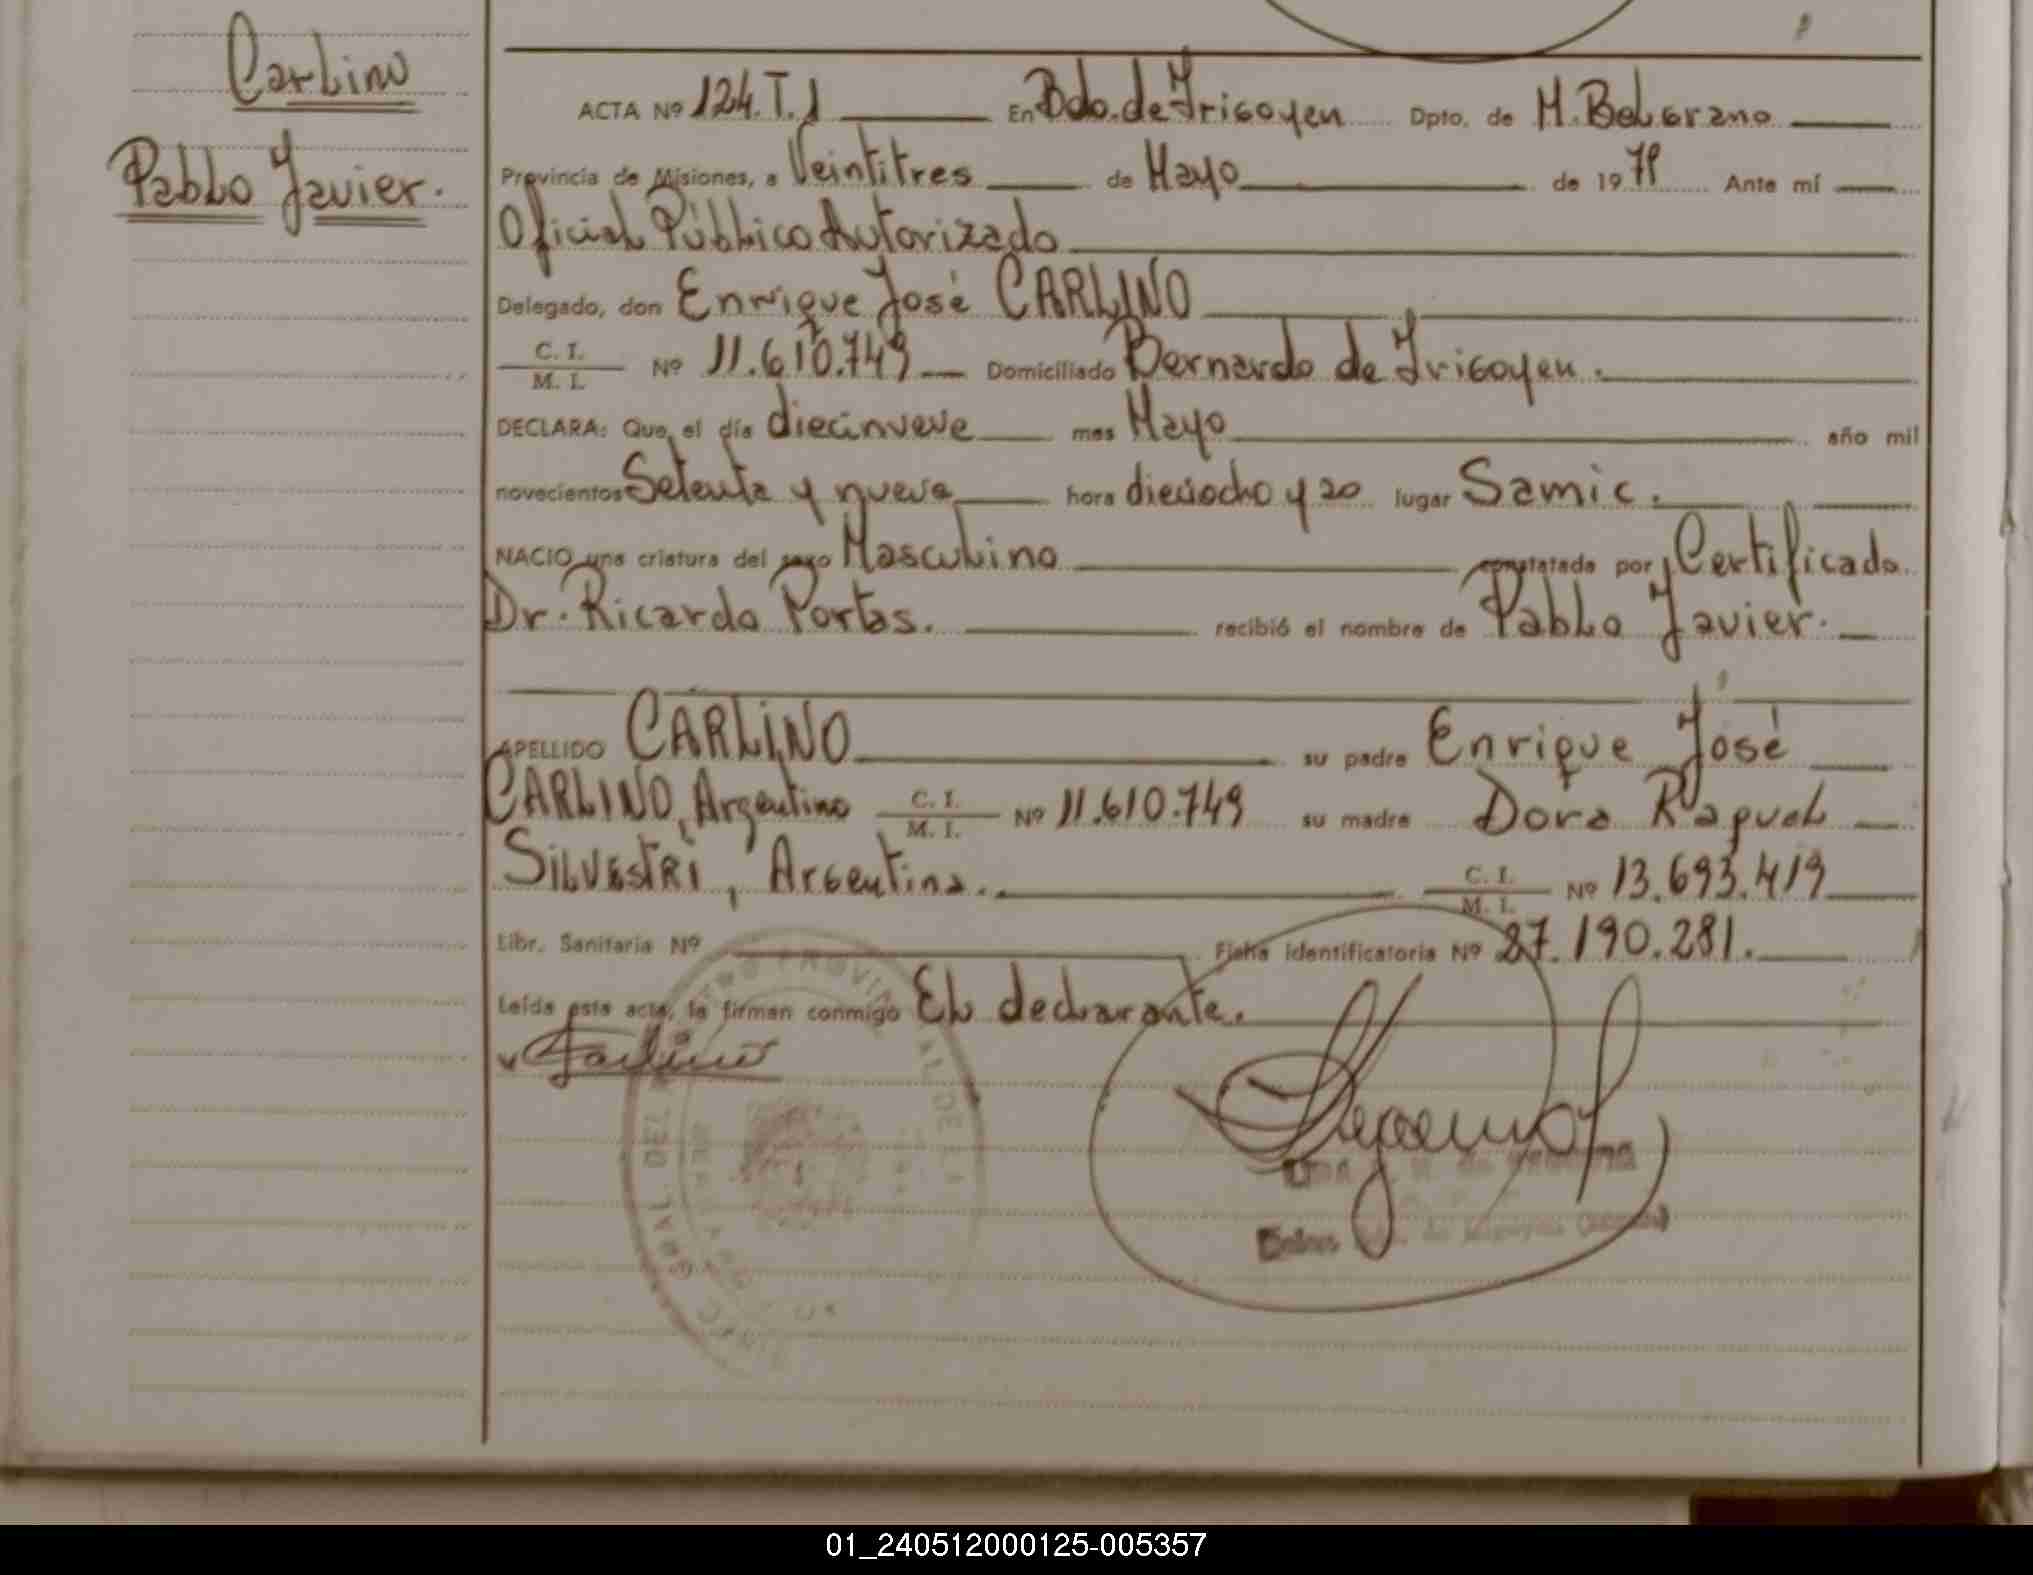 Carlino
Pablo Javier.
ACTA Nº 124.T.1 En Bdo. de Irigoyen Dpto. de M. Belgrano
Provincia de Misiones, a Veintitres de Mayo de 1979 Ante mí
Oficial Público Autorizado
Delegado, don Enrrique José CARLINO
C. I. / M. I. Nº 11.610.749 Domiciliado Bernardo de Irigoyen.
DECLARA: Que el día diecinueve mes Mayo año mil
novecientos Setenta y nueve hora dieciocho y 20 lugar Samic.
NACIO una criatura del sexo Masculino constatada por Certificado
Dr. Ricardo Portas. recibió el nombre de Pablo Javier.
APELLIDO CARLINO su padre Enrique José
CARLINO, Argentino C. I. / M. I. Nº 11.610.749 su madre Dora Raquel
SILVESTRI, Argentina. C. I. / M. I. Nº 13.693.419
Libr. Sanitaria Nº Ficha identificatoria Nº 27.190.281.
Leída esta acta, la firman conmigo El declarante.
Carlino
01_240512000125-005357